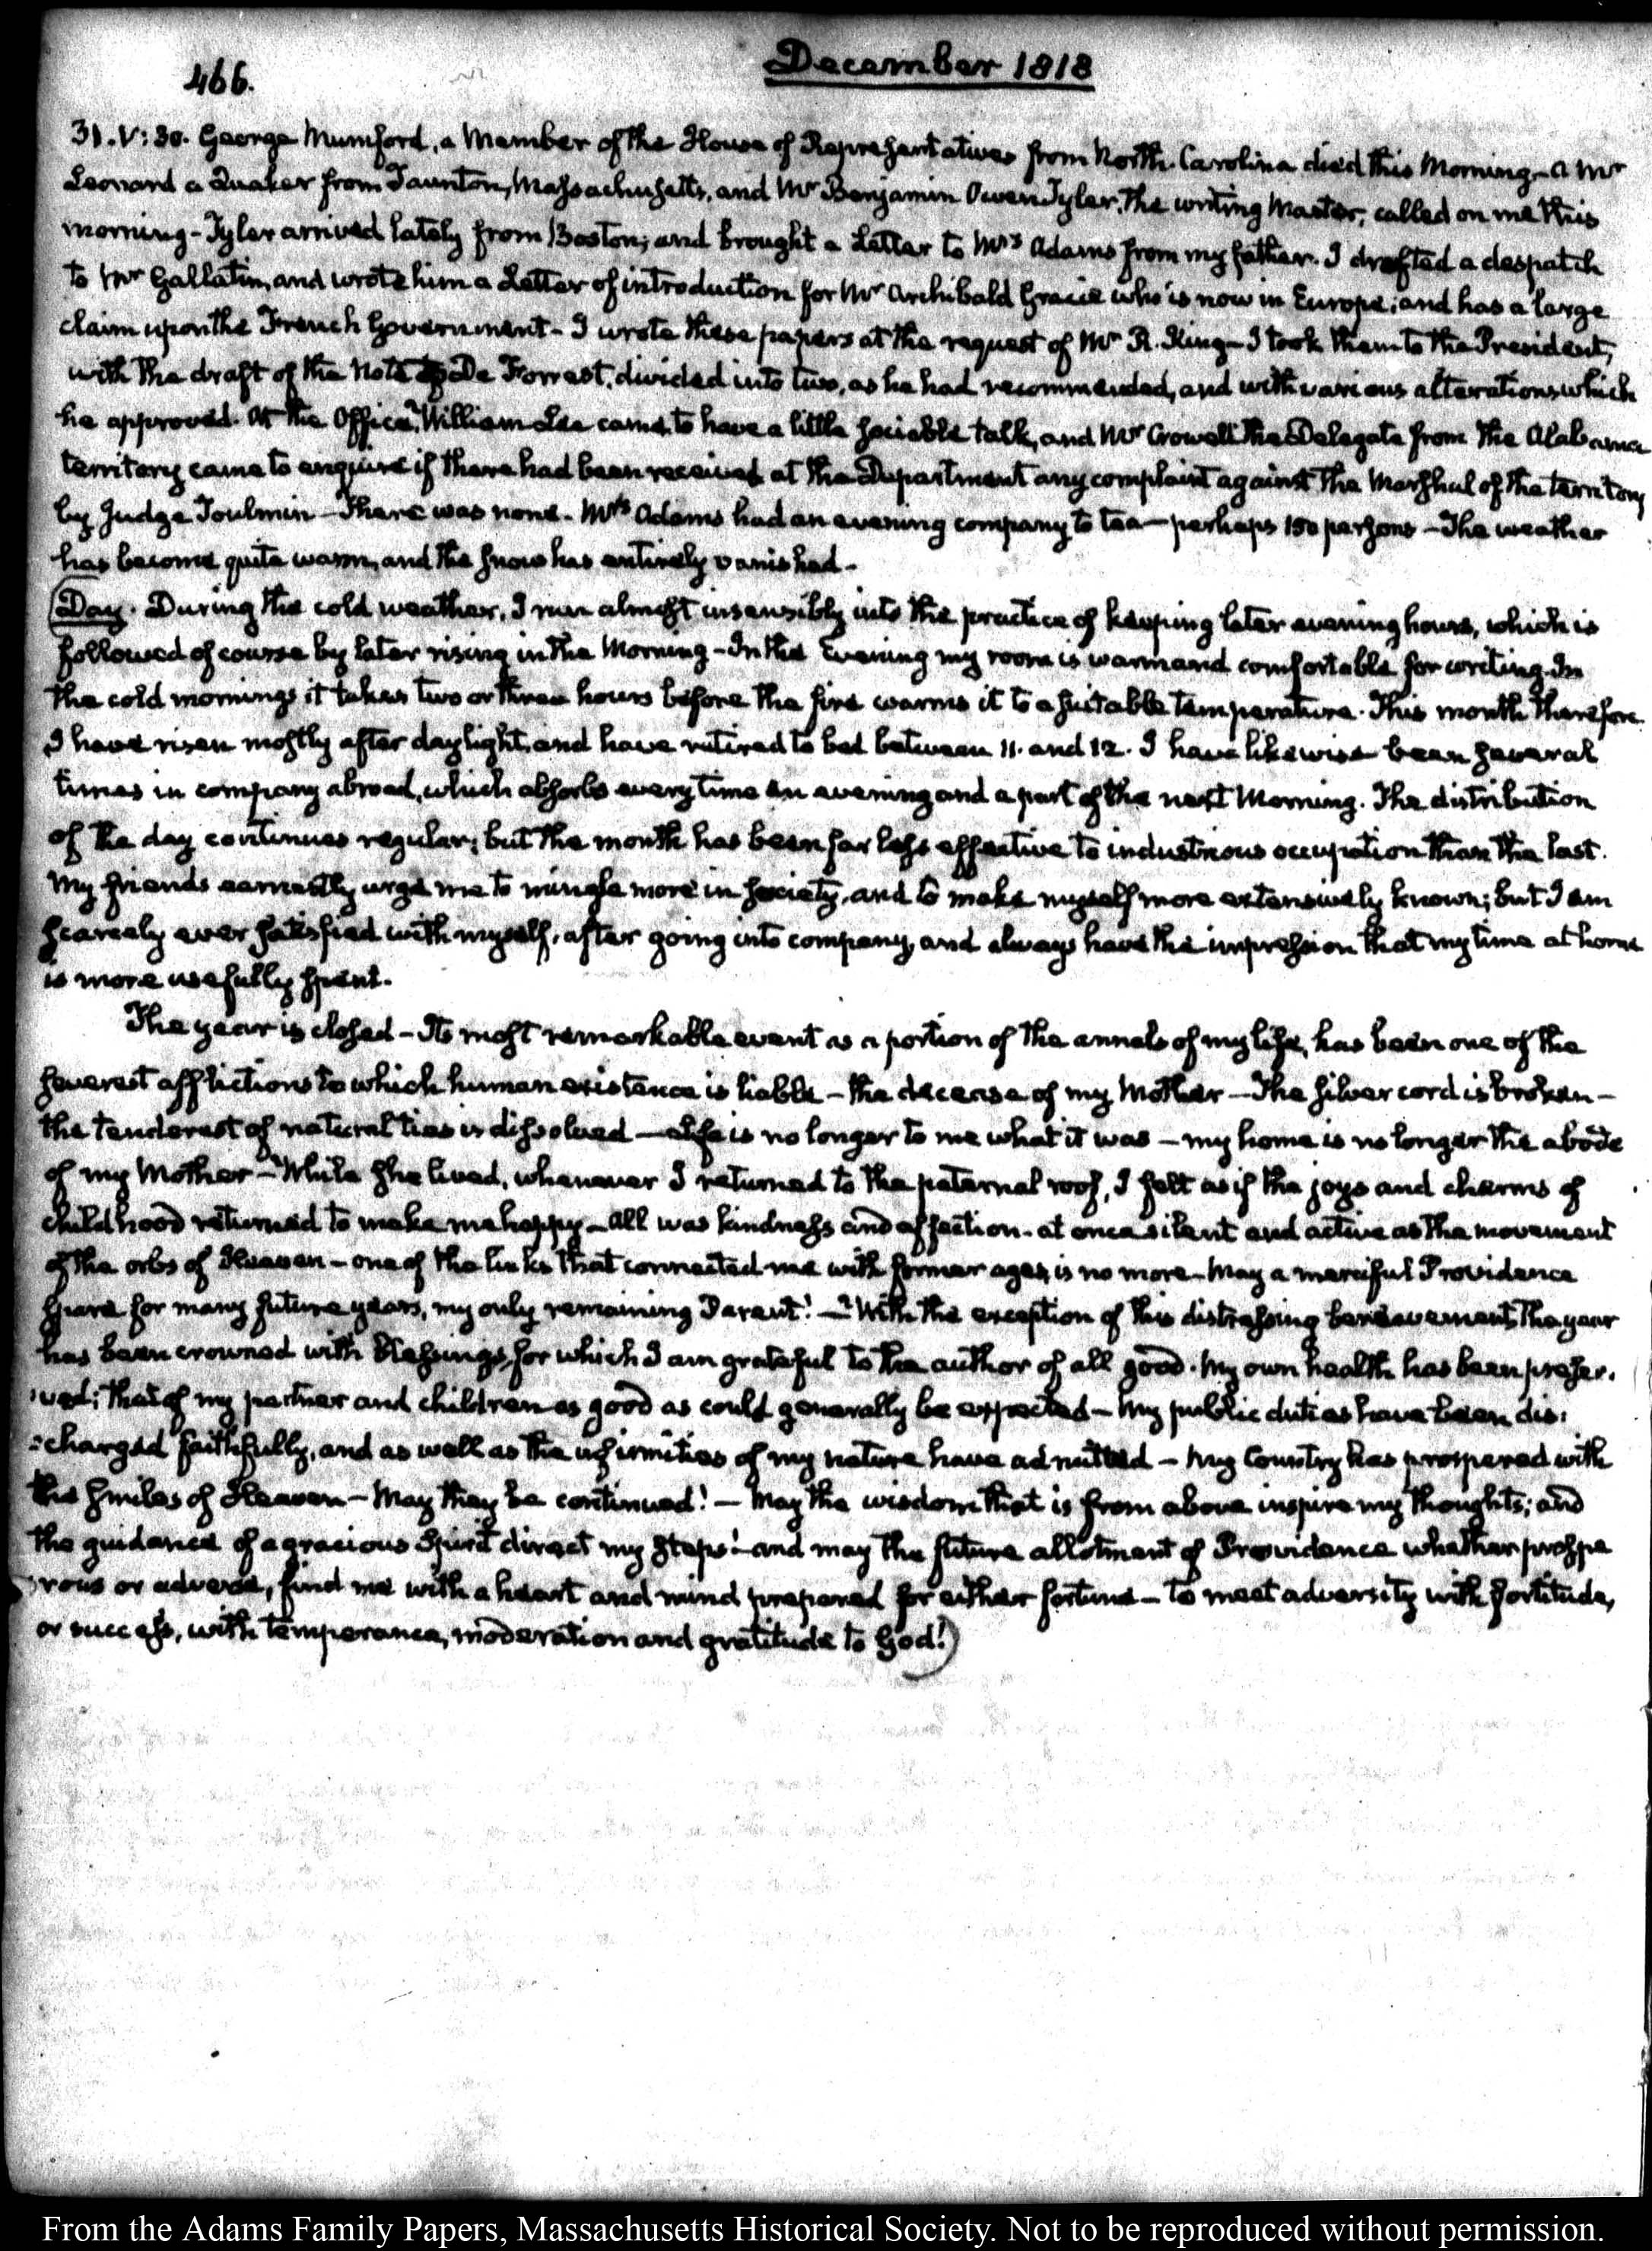 466.
December 1818
31. V:30. George Mumford, a Member of the House of Representatives from North-Carolina died this Morning - A Mr
Leonard a Quaker from Taunton, Massachusetts, and Mr Benjamin Owen Tyler, the writing Master, called on me this
morning - Tyler arrived lately from Boston; and brought a Letter to Mrs Adams from my father. I drafted a despatch
to Mr Gallatin, and wrote him a Letter of introduction for Mr Archibald Gracie who is now in Europe; and has a large
claim upon the French Government - I wrote these papers at the request of Mr R. King - I took them to the President,
with the draft of the Note to De Forrest, divided into two, as he had recommended, and with various alterations which
he approved. At the Office, William Lee came, to have a little sociable talk, and Mr Crowell the Delegate from the Alabama
territory came to enquire if there had been received at the Department any complaint against the Marshal of the territory
by Judge Toulmin - There was none. Mrs Adams had an evening company to tea - perhaps 150 persons - The weather
has become quite warm, and the snow has entirely vanished.
Day. During the cold weather, I run almost insensibly into the practice of keeping later evening hours, which is
followed of course by later rising in the Morning - In the Evening my room is warm and comfortable for writing. In
the cold mornings it takes two or three hours before the fire warms it to a suitable temperature. This month therefore
I have risen mostly after daylight, and have retired to bed between 11. and 12. I have likewise been several
times in company abroad, which absorbs every time an evening and a part of the next Morning. The distribution
of the day continues regular; but the month has been far less effective to industrious occupation than the last.
My friends earnestly urge me to mingle more in society, and to make myself more extensively known; but I am
scarcely ever satisfied with myself, after going into company, and always have the impression that my time at home
is more usefully spent.
The year is closed - Its most remarkable event as a portion of the annals of my life, has been one of the
severest afflictions to which human existence is liable - the decease of my Mother - The silver cord is broken -
the tenderest of natural ties is dissolved - life is no longer to me what it was - my home is no longer the abode
of my Mother - While she lived, whenever I returned to the paternal roof, I felt as if the joys and charms of
childhood returned to make me happy - All was kindness and affection. at once silent and active as the movement
of the orbs of Heaven - one of the links that connected me with former ages, is no more - May a merciful Providence
spare for many future years, my only remaining Parent! - With the exception of this distressing bereavement, the year
has been crowned with blessings, for which I am grateful to the author of all good. My own health has been preser-
:ved; that of my partner and children as good as could generally be expected - My public duties have been dis:
:charged faithfully, and as well as the infirmities of my nature have admitted - My Country has prospered with
the smiles of Heaven - May they be continued! - May the wisdom that is from above inspire my thoughts; and
the guidance of a gracious Spirit direct my steps! - and may the future allotment of Providence whether prospe
:rous or adverse, find me with a heart and mind prepared for either fortune - to meet adversity with fortitude,
or success, with temperance, moderation and gratitude to God!)
From the Adams Family Papers, Massachusetts Historical Society. Not to be reproduced without permission.